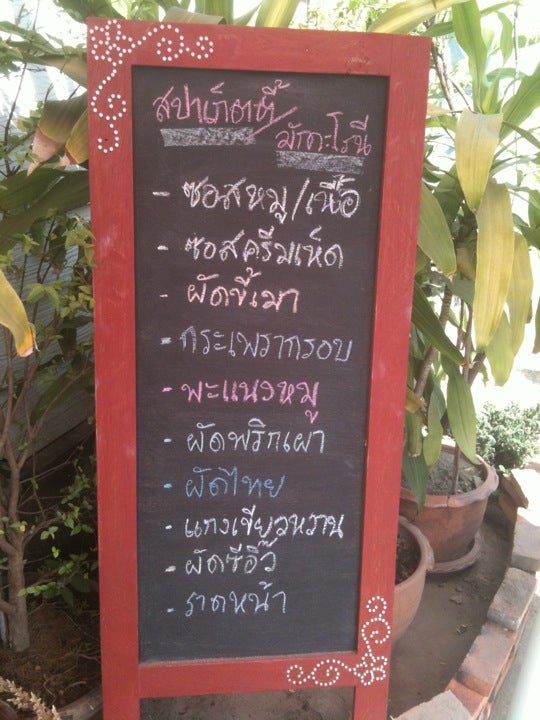 สปาเก็ตตี้/
มักกะโรนี
- ซอสหมู/เนื้อ
- ซอสครีมเห็ด
- ผัดขี้เมา
- กระเพรากรอบ
- พะแนงหมู
- ผัดพริกเผา
- ผัดไทย
- แกงเขียวหวาน
- ผัดซีอิ๊ว
- ราดหน้า